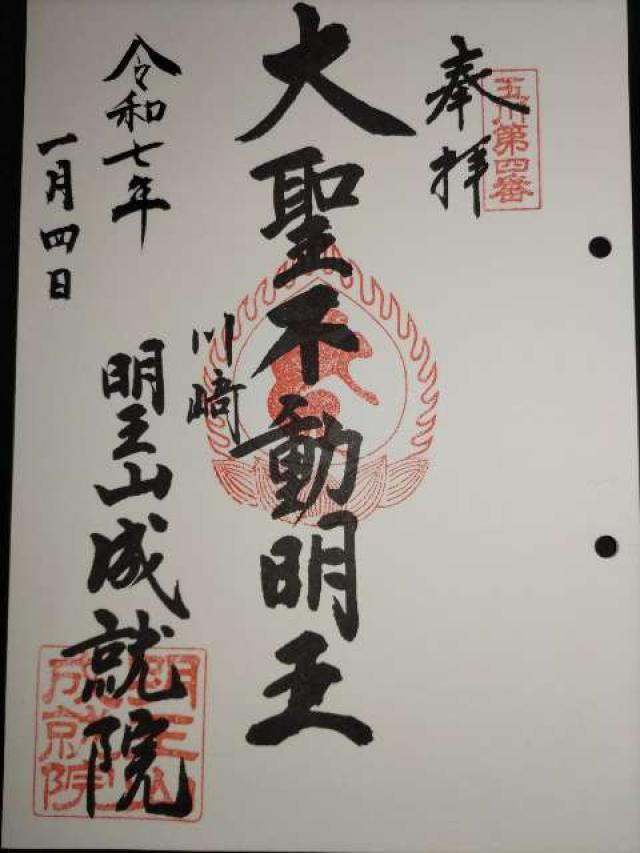 奉拝
玉川第四番
大聖不動明王
川﨑
令和七年
一月四日
明王山成就院
明王山
成就院